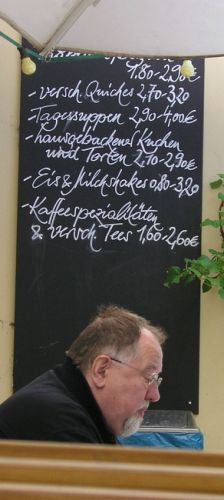 1,80-2,90€
- versch. Quiches 2,70-3,20
- Tagessuppen 2,90-4,00€
- hausgebackenes Kuchen
und Torten 2,10-2,90€
- Eis & Milchshakes 0,80-3,20
- Kaffeespezialitäten
& versch. Tees 1,60-2,60€